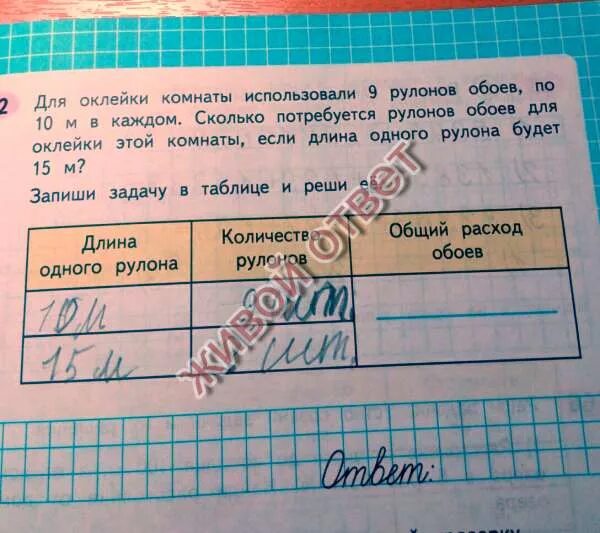 2
Для оклейки комнаты использовали 9 рулонов обоев, по
10 м в каждом. Сколько потребуется рулонов обоев для
оклейки этой комнаты, если длина одного рулона будет
15 м?
Запиши задачу в таблице и реши её.
Длина
одного рулона
Количество
рулонов
Общий расход
обоев
10 м
9 шт.
15 м
шт.
Ответ:
ЖИВОЙ ОТВЕТ